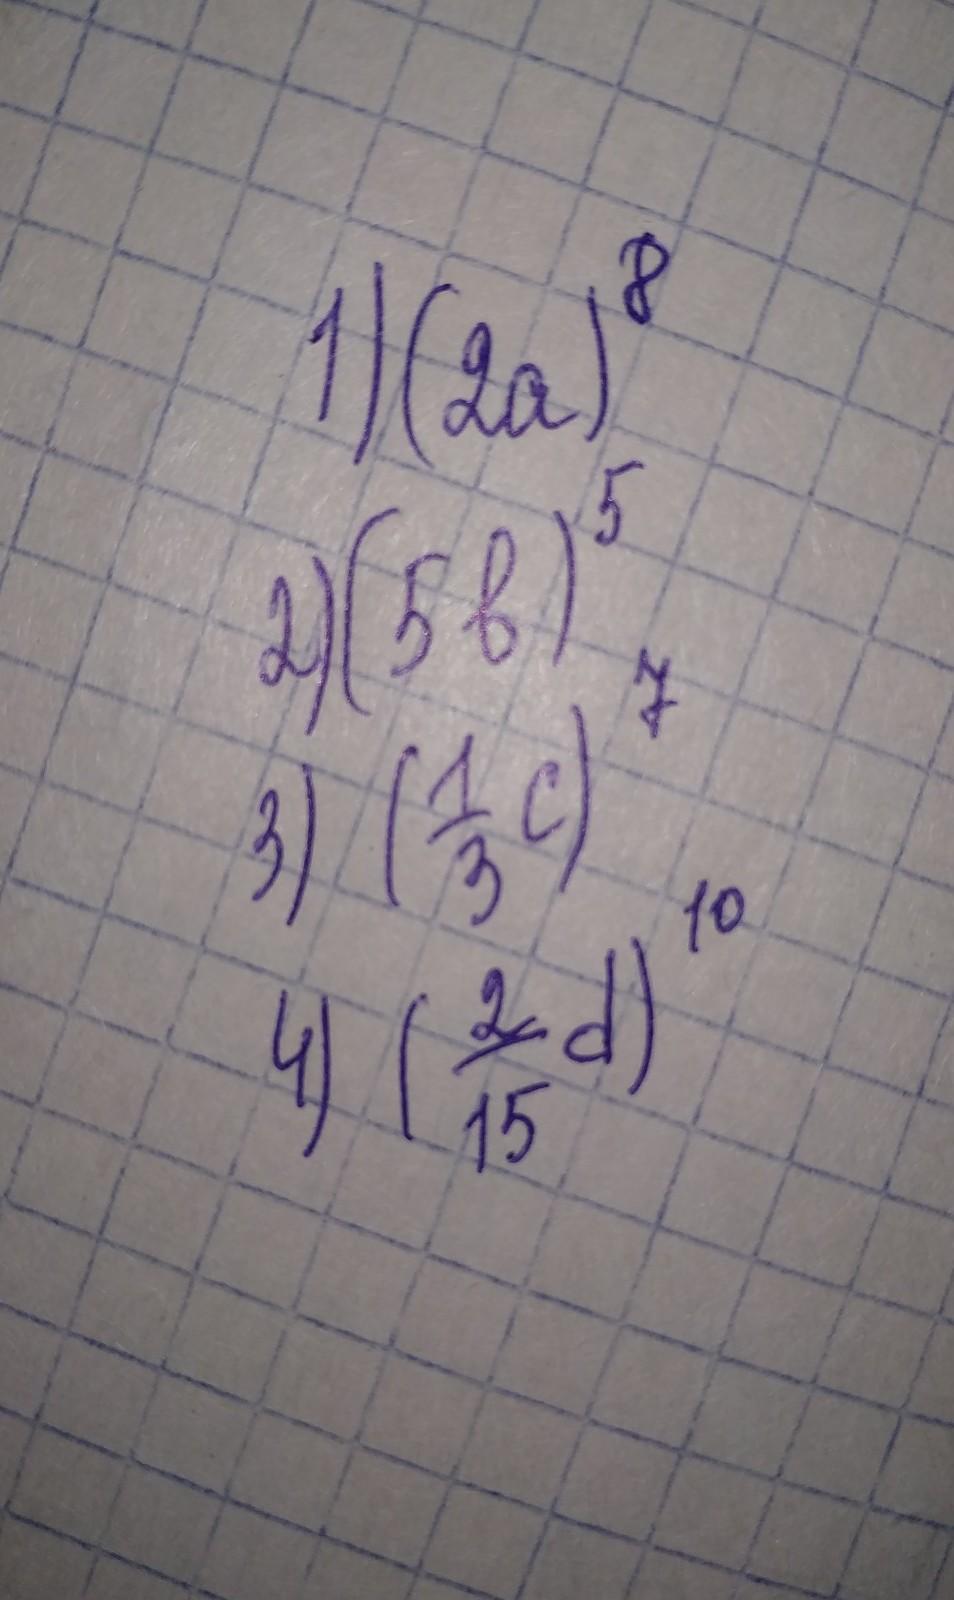 1) (2a)⁸
2) (5b)⁵
3) (1/3 c)⁷
4) (2/15 d)¹⁰